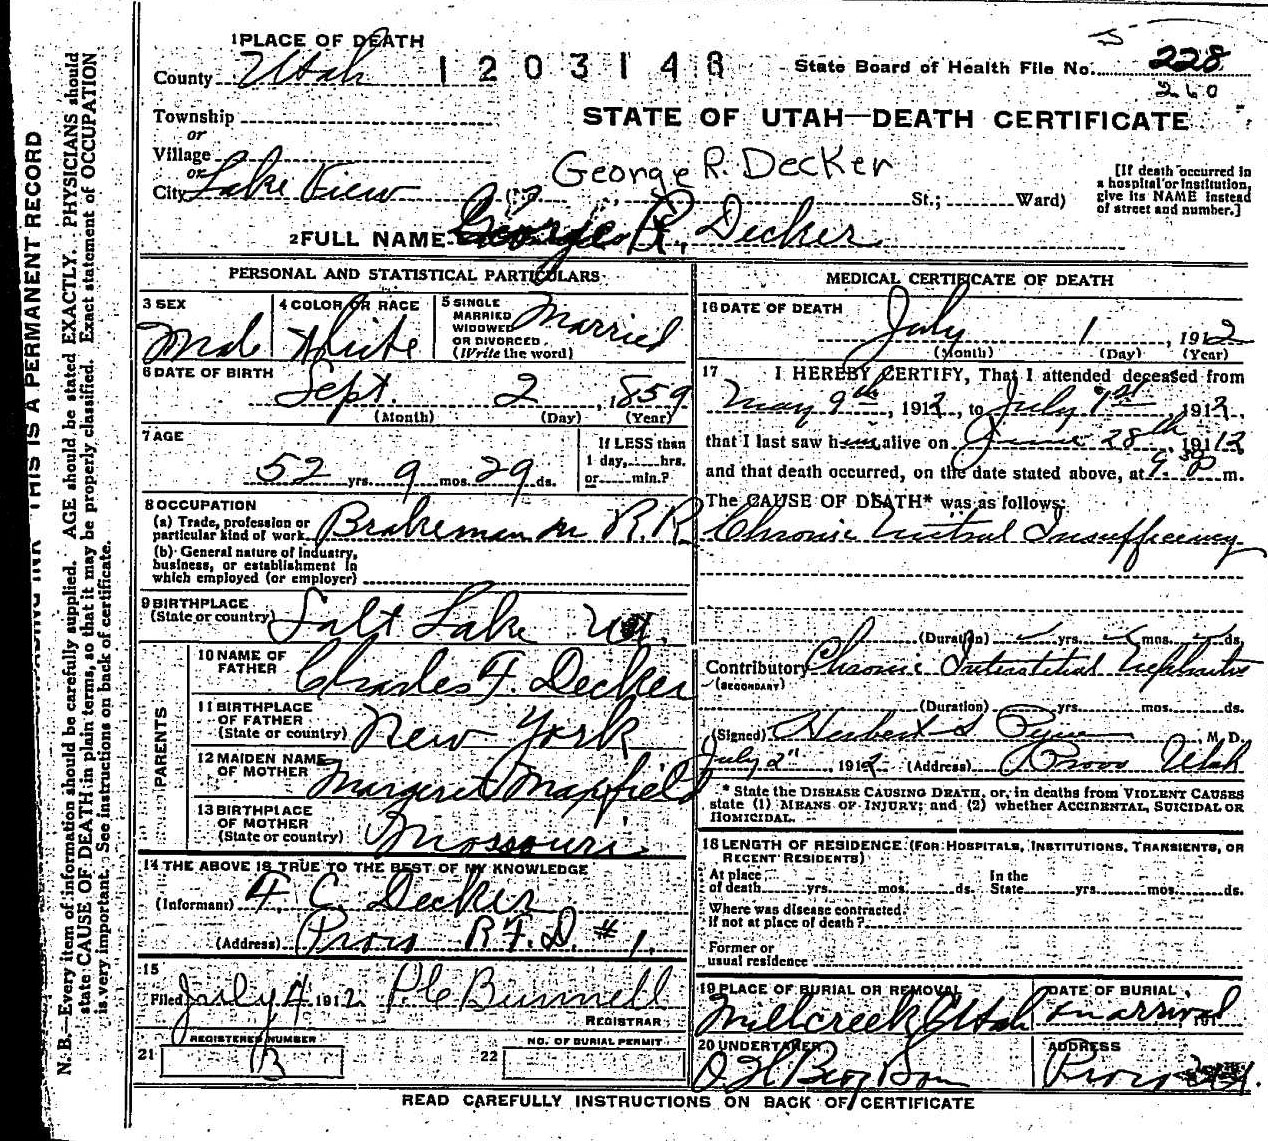 1 PLACE OF DEATH
County Utah
1203148
State Board of Health File No. 228
260
Township
or
Village
or
City Lake View
STATE OF UTAH—DEATH CERTIFICATE
George R. Decker
St.; Ward)
[If death occurred in a hospital or institution, give its NAME instead of street and number.]
2 FULL NAME George R. Decker
PERSONAL AND STATISTICAL PARTICULARS
3 SEX
Male
4 COLOR OR RACE
White
5 SINGLE
MARRIED
WIDOWED
OR DIVORCED
(Write the word)
Married
6 DATE OF BIRTH
Sept. 2, 1859
(Month) (Day) (Year)
7 AGE
52 yrs. 9 mos. 29 ds.
If LESS than
1 day, hrs.
or min.?
8 OCCUPATION
(a) Trade, profession or
particular kind of work Brakeman on R.R.
(b) General nature of Industry,
business, or establishment in
which employed (or employer)
9 BIRTHPLACE
(State or country) Salt Lake Ut.
PARENTS
10 NAME OF
FATHER Charles F. Decker
11 BIRTHPLACE
OF FATHER
(State or country) New York
12 MAIDEN NAME
OF MOTHER Margaret Maxfield
13 BIRTHPLACE
OF MOTHER
(State or country) Missouri
14 THE ABOVE IS TRUE TO THE BEST OF MY KNOWLEDGE
(Informant) F. C. Decker
(Address) Provo R.F.D. #1.
15
Filed July 4 1912 Bunnell
REGISTRAR
21
REGISTERED NUMBER
13
22
NO. OF BURIAL PERMIT
MEDICAL CERTIFICATE OF DEATH
16 DATE OF DEATH
July 1, 1912
(Month) (Day) (Year)
17 I HEREBY CERTIFY, That I attended deceased from
May 9th, 1912, to July 1st 1912,
that I last saw him alive on June 28th 1912
and that death occurred, on the date stated above, at 9:30 P m.
The CAUSE OF DEATH* was as follows:
Chronic Mitral Insufficiency
(Duration) yrs. mos. ds.
Contributory Chronic Interstitial Nephritis
(SECONDARY)
(Duration) yrs. mos. ds.
(Signed) Herbert S. Pyne M. D.
July 2", 1912 (Address) Provo Utah
* State the DISEASE CAUSING DEATH, or, in deaths from VIOLENT CAUSES
state (1) MEANS OF INJURY; and (2) whether ACCIDENTAL, SUICIDAL OR
HOMICIDAL.
18 LENGTH OF RESIDENCE (FOR HOSPITALS, INSTITUTIONS, TRANSIENTS, OR
RECENT RESIDENTS)
At place
of death yrs. mos. ds.
In the
State yrs. mos. ds.
Where was disease contracted
if not at place of death?
Former or
usual residence
19 PLACE OF BURIAL OR REMOVAL
Millcreek Utah
DATE OF BURIAL
on arrival 191
20 UNDERTAKER
ADDRESS
Provo
READ CAREFULLY INSTRUCTIONS ON BACK OF CERTIFICATE
THIS IS A PERMANENT RECORD
N. B.—Every item of information should be carefully supplied. AGE should be stated EXACTLY. PHYSICIANS should
state CAUSE OF DEATH in plain terms, so that it may be properly classified. Exact statement of OCCUPATION
is very important. See instructions on back of certificate.